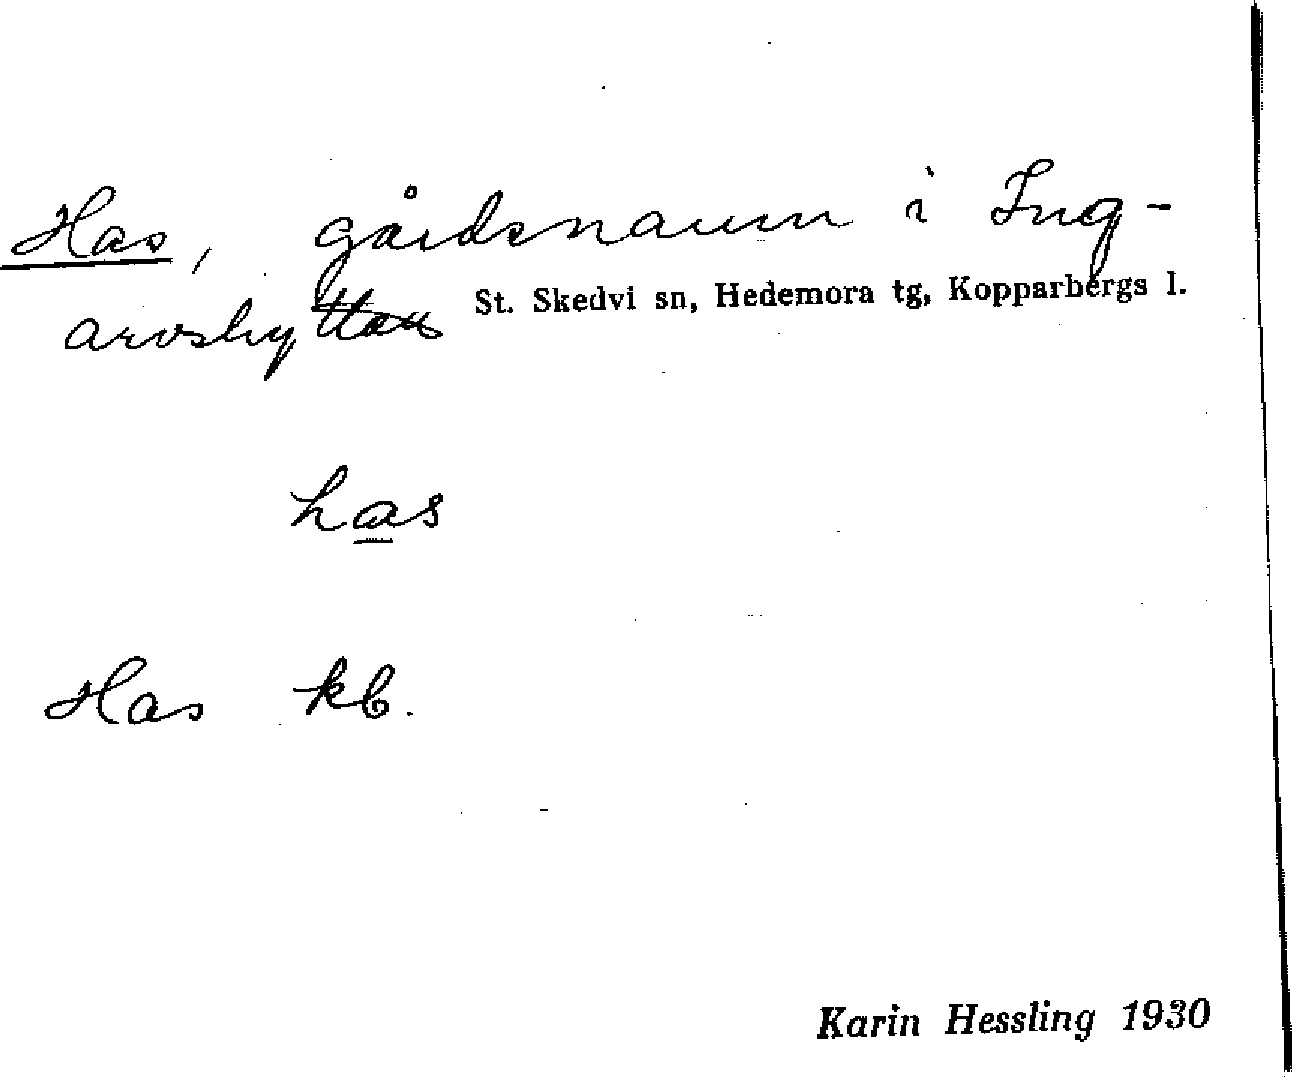 Has, gårdsnamn i Ing-
arvshyttan St. Skedvi sn, Hedemora tg, Kopparbergs l.
has
Has kb.
Karin Hessling 1930